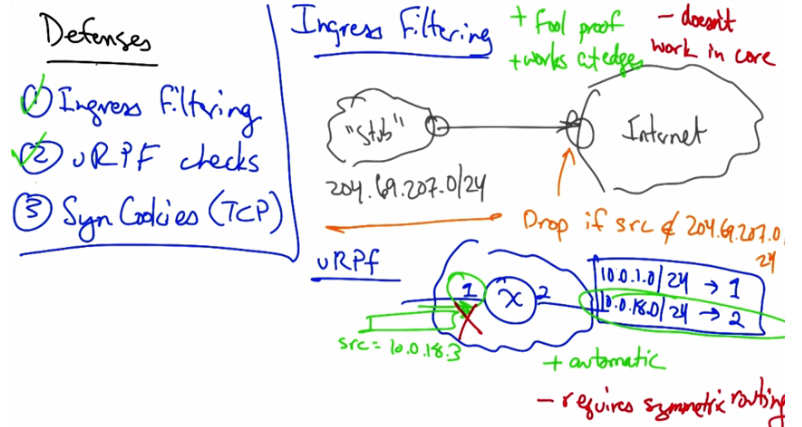 Defenses
① Ingress Filtering
② uRPF checks
③ Syn Cookies (TCP)
Ingress Filtering
+ Fool proof
+ works at edges
- doesn't
work in core
"Stub"
Internet
204.69.207.0/24
Drop if src ∉ 204.69.207.0/
24
uRPf
1
X
2
10.0.1.0/24 → 1
10.0.18.0/24 → 2
src = 10.0.18.3
+ automatic
- requires symmetric routing